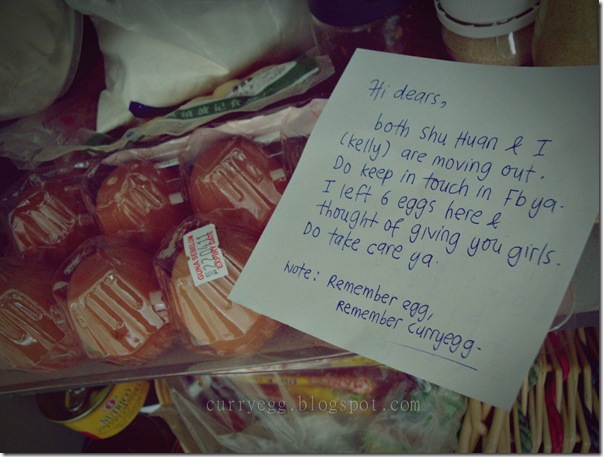 Hi dears,
both Shu Huan & I
(kelly) are moving out.
Do keep in touch in Fb ya.
I left 6 eggs here &
thought of giving you girls.
Do take care ya.
Note: Remember egg,
Remember curryegg.
GUNA SEBELUM
EXPIRY DATE
curryegg.blogspot.com